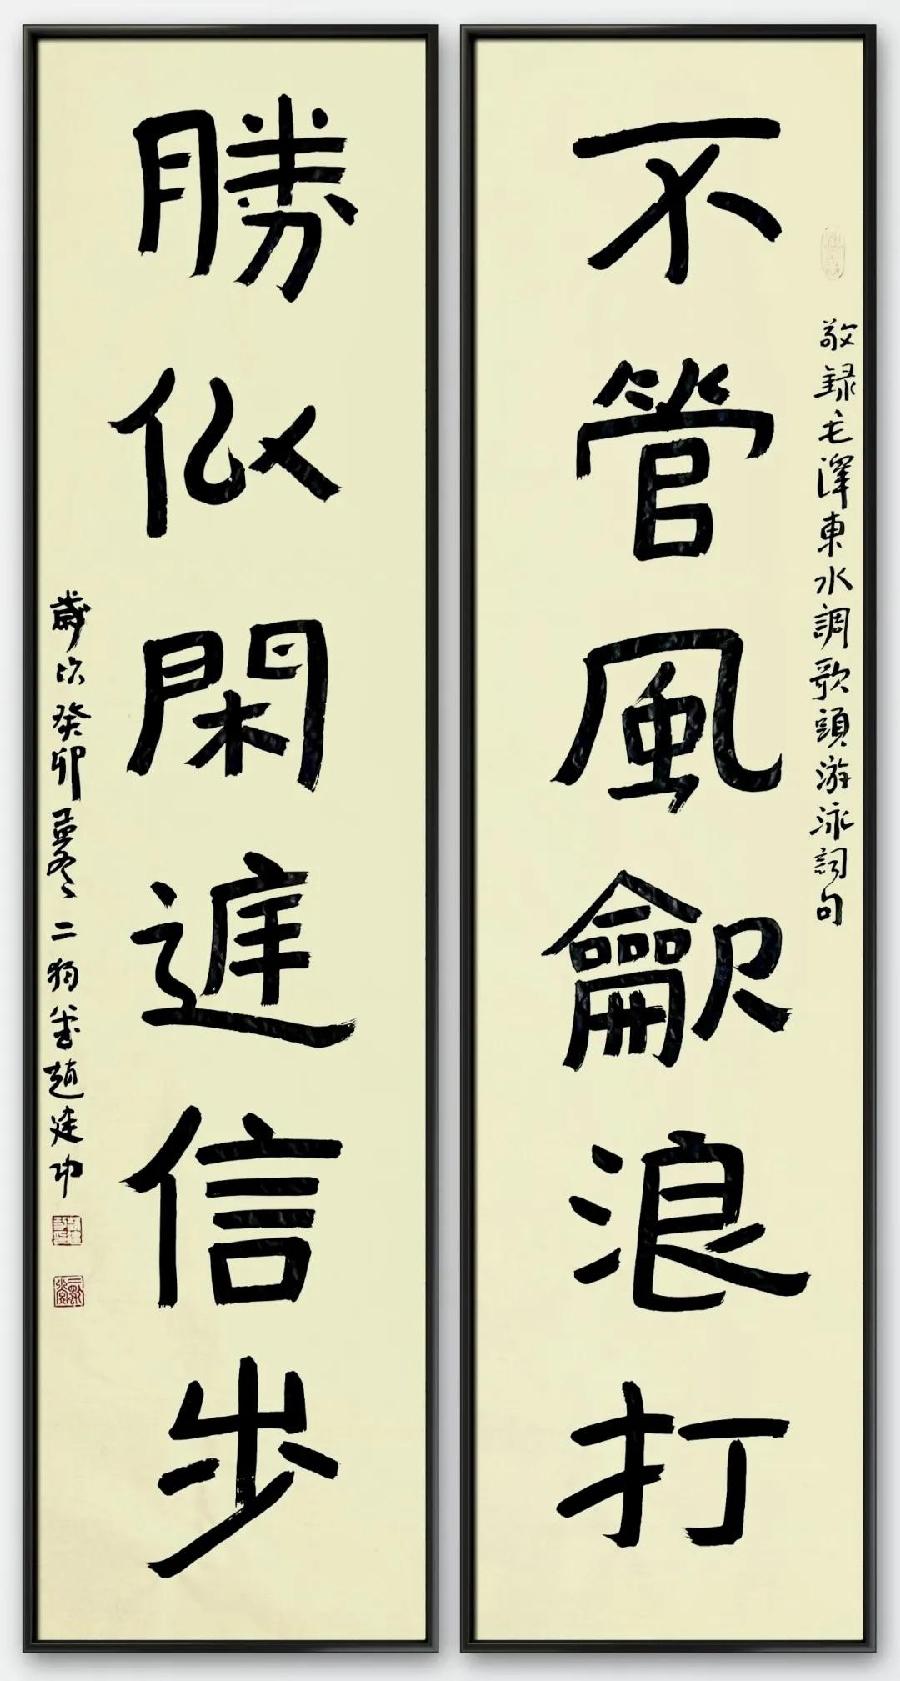 不管風龡浪打
敬録毛澤東水調歌頭游泳詞句
勝似閑庭信步
歲次癸卯孟冬二趙建功